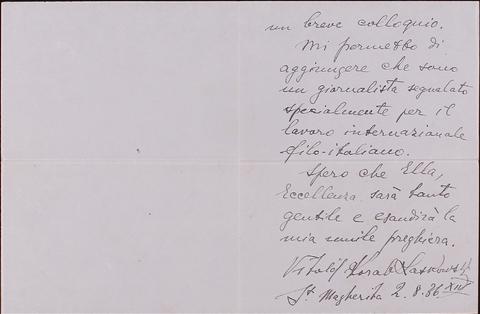 un breve colloquio.
Mi permetto di
aggiungere che sono
un giornalista segnalato
spezialmente per il
lavoro internazionale
filo-italiano.
Spero che Ella,
Eccellenza sarà tanto
gentile e esaudirà la
mia umile preghiera.
Vitold Korab Laskowski
St. Magherita 2.8.36 XIV